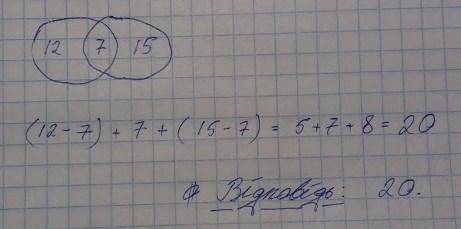 12 7 15
(12-7) + 7 + (15-7) = 5+7+8 = 20
Відповідь: 20.